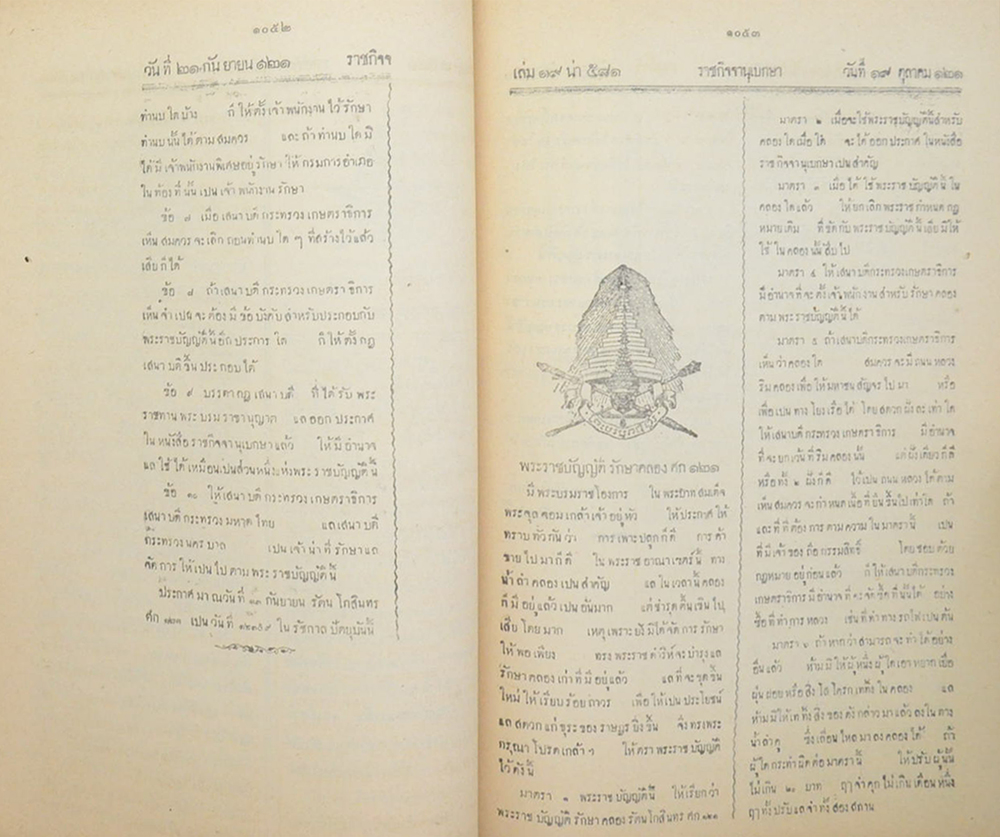 ๑๐๕๒
วันที่ ๒๑ กันยายน ๑๒๑ ราชกิจจ
ทำนบใดบ้าง ก็ให้ตั้งเจ้าพนักงานไว้รักษา
ทำนบนั้นได้ตามสมควร และถ้าทำนบใดมิ
ได้มีเจ้าพนักงานพิเศษอยู่รักษา ให้กรมการอำเภอ
ในท้องที่นั้นเปนเจ้าพนักงานรักษา
ข้อ ๗ เมื่อเสนาบดีกระทรวงเกษตราธิการ
เห็นสมควรจะเลิกถอนทำนบใด ๆ ที่สร้างไว้แล้ว
เสียก็ได้
ข้อ ๘ ถ้าเสนาบดีกระทรวงเกษตราธิการ
เห็นจำเปนจะต้องมีข้อบังคับสำหรับประกอบกับ
พระราชบัญญัตินี้อีกประการใด ก็ให้ตั้งกฎ
เสนาบดีขึ้นประกอบได้
ข้อ ๙ บรรดากฎเสนาบดี ที่ได้รับพระ
ราชทานพระบรมราชานุญาต แลออกประกาศ
ในหนังสือราชกิจจานุเบกษาแล้ว ให้มีอำนาจ
แลใช้ได้เหมือนเปนส่วนหนึ่งแห่งพระราชบัญญัตินี้
ข้อ ๑๐ ให้เสนาบดีกระทรวงเกษตราธิการ
เสนาบดีกระทรวงมหาดไทย แลเสนาบดี
กระทรวงนครบาล เปนเจ้าน่าที่รักษาแล
จัดการให้เปนไปตามพระราชบัญญัตินี้
ประกาศมาณวันที่ ๑๓ กันยายน รัตนโกสินทร
ศก ๑๒๑ เปนวันที่ ๑๒๓๕๙ ในรัชกาลปัตยุบันนี้
๑๐๕๓
เล่ม ๑๙ น่า ๕๘๑ ราชกิจจานุเบกษา วันที่ ๑๙ ตุลาคม ๑๒๑
พระราชบัญญัติ รักษาคลอง ศก ๑๒๑
มีพระบรมราชโองการ ในพระบาทสมเด็จ
พระจุลจอมเกล้าเจ้าอยู่หัว ให้ประกาศให้
ทราบทั่วกันว่า การเพาะปลูกก็ดี การค้า
ขายไปมาก็ดี ในพระราชอาณาเขตร์นี้ ทาง
น้ำลำคลองเปนสำคัญ แลในเวลานี้คลอง
ที่มีอยู่แล้วเปนอันมาก แต่ชำรุดตื้นเขินไป
เสียโดยมาก เหตุเพราะยังมิได้จัดการรักษา
ให้พอเพียง ทรงพระราชดำริห์จะบำรุงแล
รักษาคลองเก่าที่มีอยู่แล้ว แลที่จะขุดขึ้น
ใหม่ให้เรียบร้อยถาวร เพื่อให้เปนประโยชน์
แลสดวกแก่ธุระของราษฎรยิ่งขึ้น จึงทรงพระ
กรุณาโปรดเกล้า ฯ ให้ตราพระราชบัญญัติ
ไว้ดังนี้
มาตรา ๑ พระราชบัญญัตินี้ ให้เรียกว่า
พระราชบัญญัติรักษาคลองรัตนโกสินทรศก ๑๒๑
มาตรา ๒ เมื่อจะใช้พระราชบัญญัตินี้สำหรับ
คลองใดเมื่อใด จะได้ออกประกาศในหนังสือ
ราชกิจจานุเบกษาเปนสำคัญ
มาตรา ๓ เมื่อได้ใช้พระราชบัญญัตินี้ใน
คลองใดแล้ว ให้ยกเลิกพระราชกำหนดกฎ
หมายเดิม ที่ขัดกับพระราชบัญญัตินี้เสียมิให้
ใช้ในคลองนั้นสืบไป
มาตรา ๔ ให้เสนาบดีกระทรวงเกษตราธิการ
มีอำนาจที่จะตั้งเจ้าพนักงานสำหรับรักษาคลอง
ตามพระราชบัญญัตินี้ได้
มาตรา ๕ ถ้าเสนาบดีกระทรวงเกษตราธิการ
เห็นว่าคลองใด สมควรจะมีถนนหลวง
ริมคลองเพื่อให้มหาชนสัญจรไปมา หรือ
เพื่อเปนทางโยงเรือได้ โดยสดวกฝั่งละเท่าใด
ให้เสนาบดีกระทรวงเกษตราธิการ มีอำนาจ
ที่จะยกเว้นที่ริมคลองนั้น แต่ฝั่งเดียวก็ดี
หรือทั้ง ๒ ฝั่งก็ดี ไว้เปนถนนหลวงได้ตาม
เห็นสมควรจะกำหนดเนื้อที่ยืนขึ้นไปเท่าใด ถ้า
และที่ที่ต้องการตามความในมาตรานี้ เปน
ที่มีเจ้าของถือกรรมสิทธิ์ โดยชอบด้วย
กฎหมายอยู่ก่อนแล้ว ก็ให้เสนาบดีกระทรวง
เกษตราธิการมีอำนาจที่จะจัดซื้อที่นั้นได้ อย่าง
ซื้อที่ทำการหลวง เช่นที่ทำทางรถไฟเปนต้น
มาตรา ๖ ถ้าหากว่าสามารถจะทำได้อย่าง
อื่นแล้ว ห้ามมิให้ผู้หนึ่งผู้ใดเอาหยากเยื่อ
ฝุ่นฝอยหรือสิ่งโสโครกเททิ้งในคลอง แล
ห้ามมิให้เททิ้งสิ่งของดังกล่าวมาแล้วลงในทาง
น้ำลำคู ซึ่งเลื่อนไหลมาลงคลองได้ ถ้า
ผู้ใดกระทำผิดต่อมาตรานี้ ให้ปรับผู้นั้น
ไม่เกิน ๒๐ บาท ฤๅจำคุกไม่เกินเดือนหนึ่ง
ฤๅทั้งปรับแลจำทั้งสองสถาน